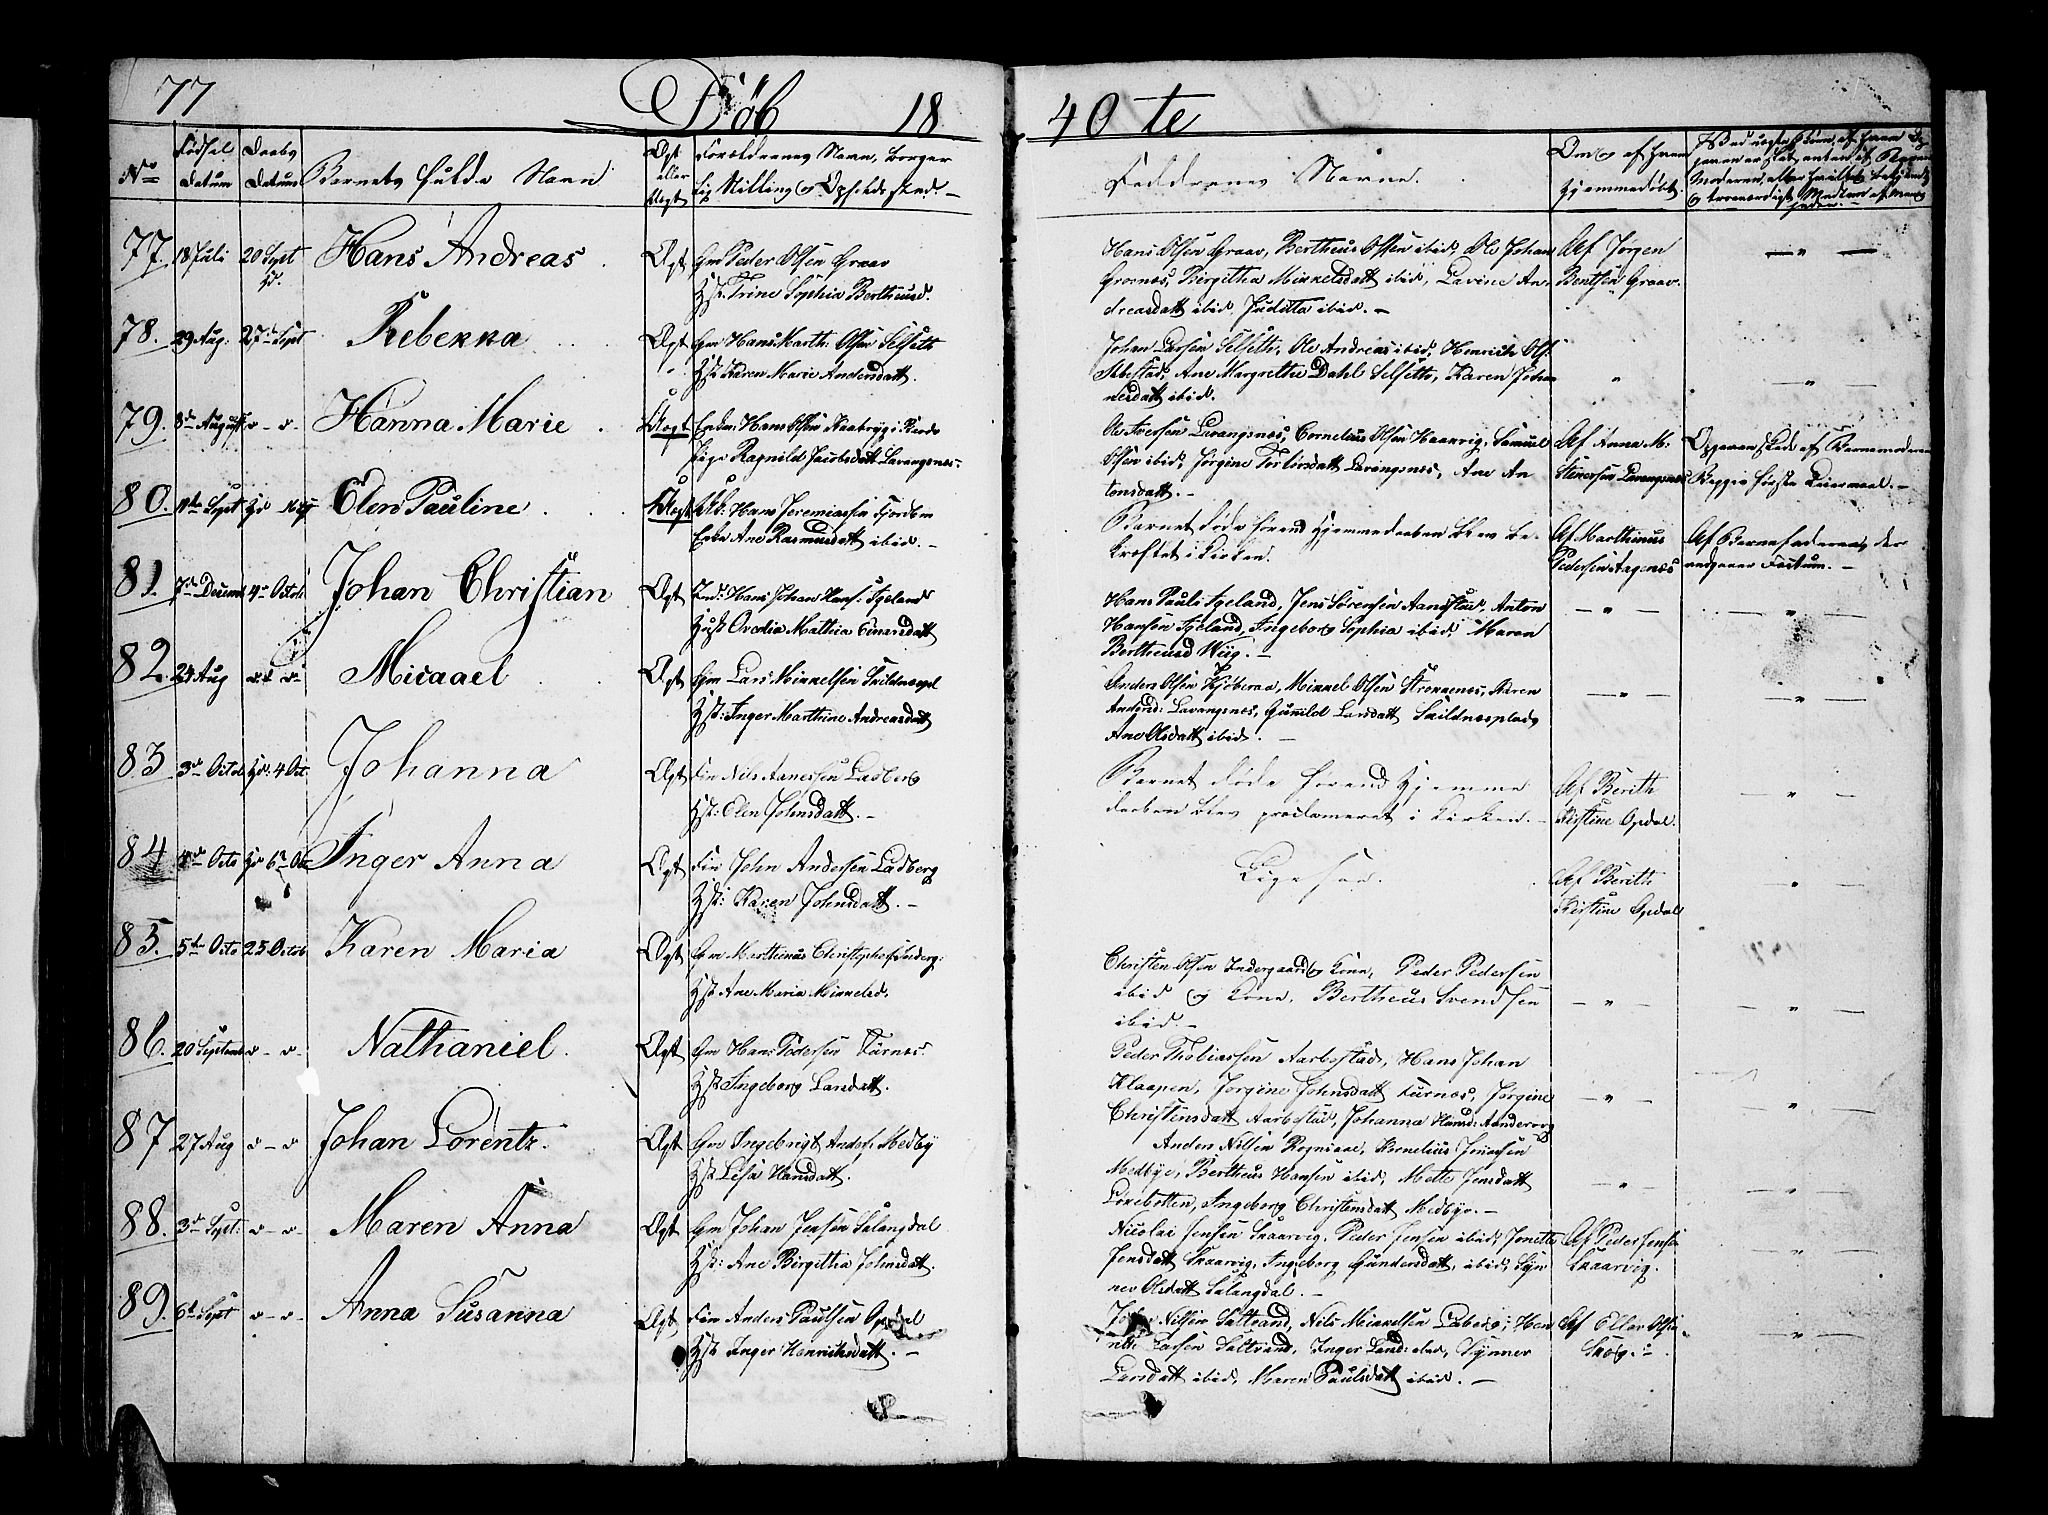 77 Døb 1840te
No Fødsels Datum Daabs Datum Barnets fulde Navn Ægt eller Uægt Forældrenes Navn, borgerlig Stilling og Opholdssted.
Faddernes Navne. Om og af hvem hjemmedøbt
77. 18 Juli 20 Sept Hd. Hans Andreas Ægt Gm Peder Olsen Graav
Hst. Trine Sophia Bertheusd.
Hans Olsen Graav, Bertheus Olsen ibid, Ole Johan
Groenes, Birgitha Mikkelsdatt ibid, Lavine An-
dreasdatt ibid. Juditta ibid. –
Af Jørgen
Bentsen Graav.
78. 29 Aug: 27de Sept Rebekka Ægt Gm Hans Marth: Olsen Selseth
Hst Karen Marie Andersdatt.
Johan Larsen Selseth, Ole Andreas ibid, Henrich Ols.
Ane Margrethe Dahl Selseth, Karen Johan
nesdatt ibid.
79. 8de August Hanna Marie Uægt Enkm: Hans Olsen
Pige Ragnild Jacobsdatt Lavangsnes.
Ole Iversen Lavangsnes, Cornelius Olsen Haarvig, Samuel
Olsen ibid, Jørgine Lavangsnes, Ane An
tonsdatt. –
Af Anna M.
Steenersen Lavangsnes
Opgaven skede af Barnemoderen
Begges første Leiermaal. –
80. 11te Sept Hd Elen Pauline Uægt Hans Jeremiassen Fjordbm
Enke Ane Rasmusdatt ibid. –
Barnet døde førend Hjemmedaaben blev be-
kræftet i Kirken.
Af Marthinus
Pedersen Aagenæs
Af Barnefaderen, der
81. 7de Decemb 4de Octob Johan Christian Ægt Hans Johan Hans: Fjeland
Hust Ovedia Mathia Einarsdatt
Hans Pauls Fjeland, Jens Sørensen Aandstad, Anton
Hansen Fjeland, Ingeborg Sophia ibid, Maren
Bertheusd Wiig. –
82. 24 Aug Micaael Ægt Gm Lars Mikkelsen
Hst: Inger Marthine Andreasdatt
Anders Olsen Kjøberaa, Mikkel Olsen Strokkenes, Karen
Andersd: Lavangsnes, Gunild Larsdatt Skildnesplads
Ane Olsdatt ibid. –
83 3de Octob Hd: 4 Oct. Johanna Ægt Fin Nils Aanessen Ladberg
Hst: Elen Johnsdatt. –
Barnet døde førend Hjemme
daaben blev proclameret i Kirken. –
Af Berith
Kistine Opdal.
84 4de Octo Hd 6te Oct Inger Anna Ægt Fin John Andersen Ladberg
Hst: Karen Johnsdatt. –
Ligesaa.
Af Berith
Kistine Opdal
85. 5te Octo 25 Octob Karen Maria Ægt Gm Marthinus Christophers Inderg:
Hst Ane Maria Mikkelsd.
Christen Olsen Indergaard og Kone, Peder Pedersen
ibid og Kone, Bertheus Svendsen
ibid. –
86. 20 Septemb Nathaniel. Ægt Gm Hans Pedersen Turnes.
Hst Ingeborg Larsdatt.
Peder Thobiassen Aarbostad, Hans Johan
Klaapen, Jørgine Johnsdatt Turnes, Jørgine
Christensdatt Aarbostad, Johanna Hansd: Aanderoag
87 27 Aug Johan Lorentz. Ægt Gm Ingebrigt Anders: Medby
Hst Lisa Hansdatt.
Anders Nilsen Rognaae, Kornelius Jonassen
Medbye, Bertheus Hansen ibid, Mette Jensdatt
Løxebotten, Ingeborg Christensdatt Medbye. –
88. 3de Sept: Maren Anna Ægt Gm Johan Jensen Salangdal
Hst: Ane Birgitha Johnsdatt.
Nicolai Jensen Skaarvig, Peder Jensen ibid, Jonetta
Jensdatt Skaarvig, Ingeborg Gundersdatt, ibid, Syn
nev Olsdatt Salangdal. –
Af Peder Jensen
Skaarvig.
89. 6te Sept Anna Susanna Ægt Fin Anders Paulsen Opdal
Hst Inger Henrichsdatt. –
Nilsen Saltvand, Nils Mikkelsen Laberg, Han
Larsen Saltvand, Inger Synner
Larsdatt ibid, Maren Paulsdatt ibid. –
Af Ellen Olsen
Skog.